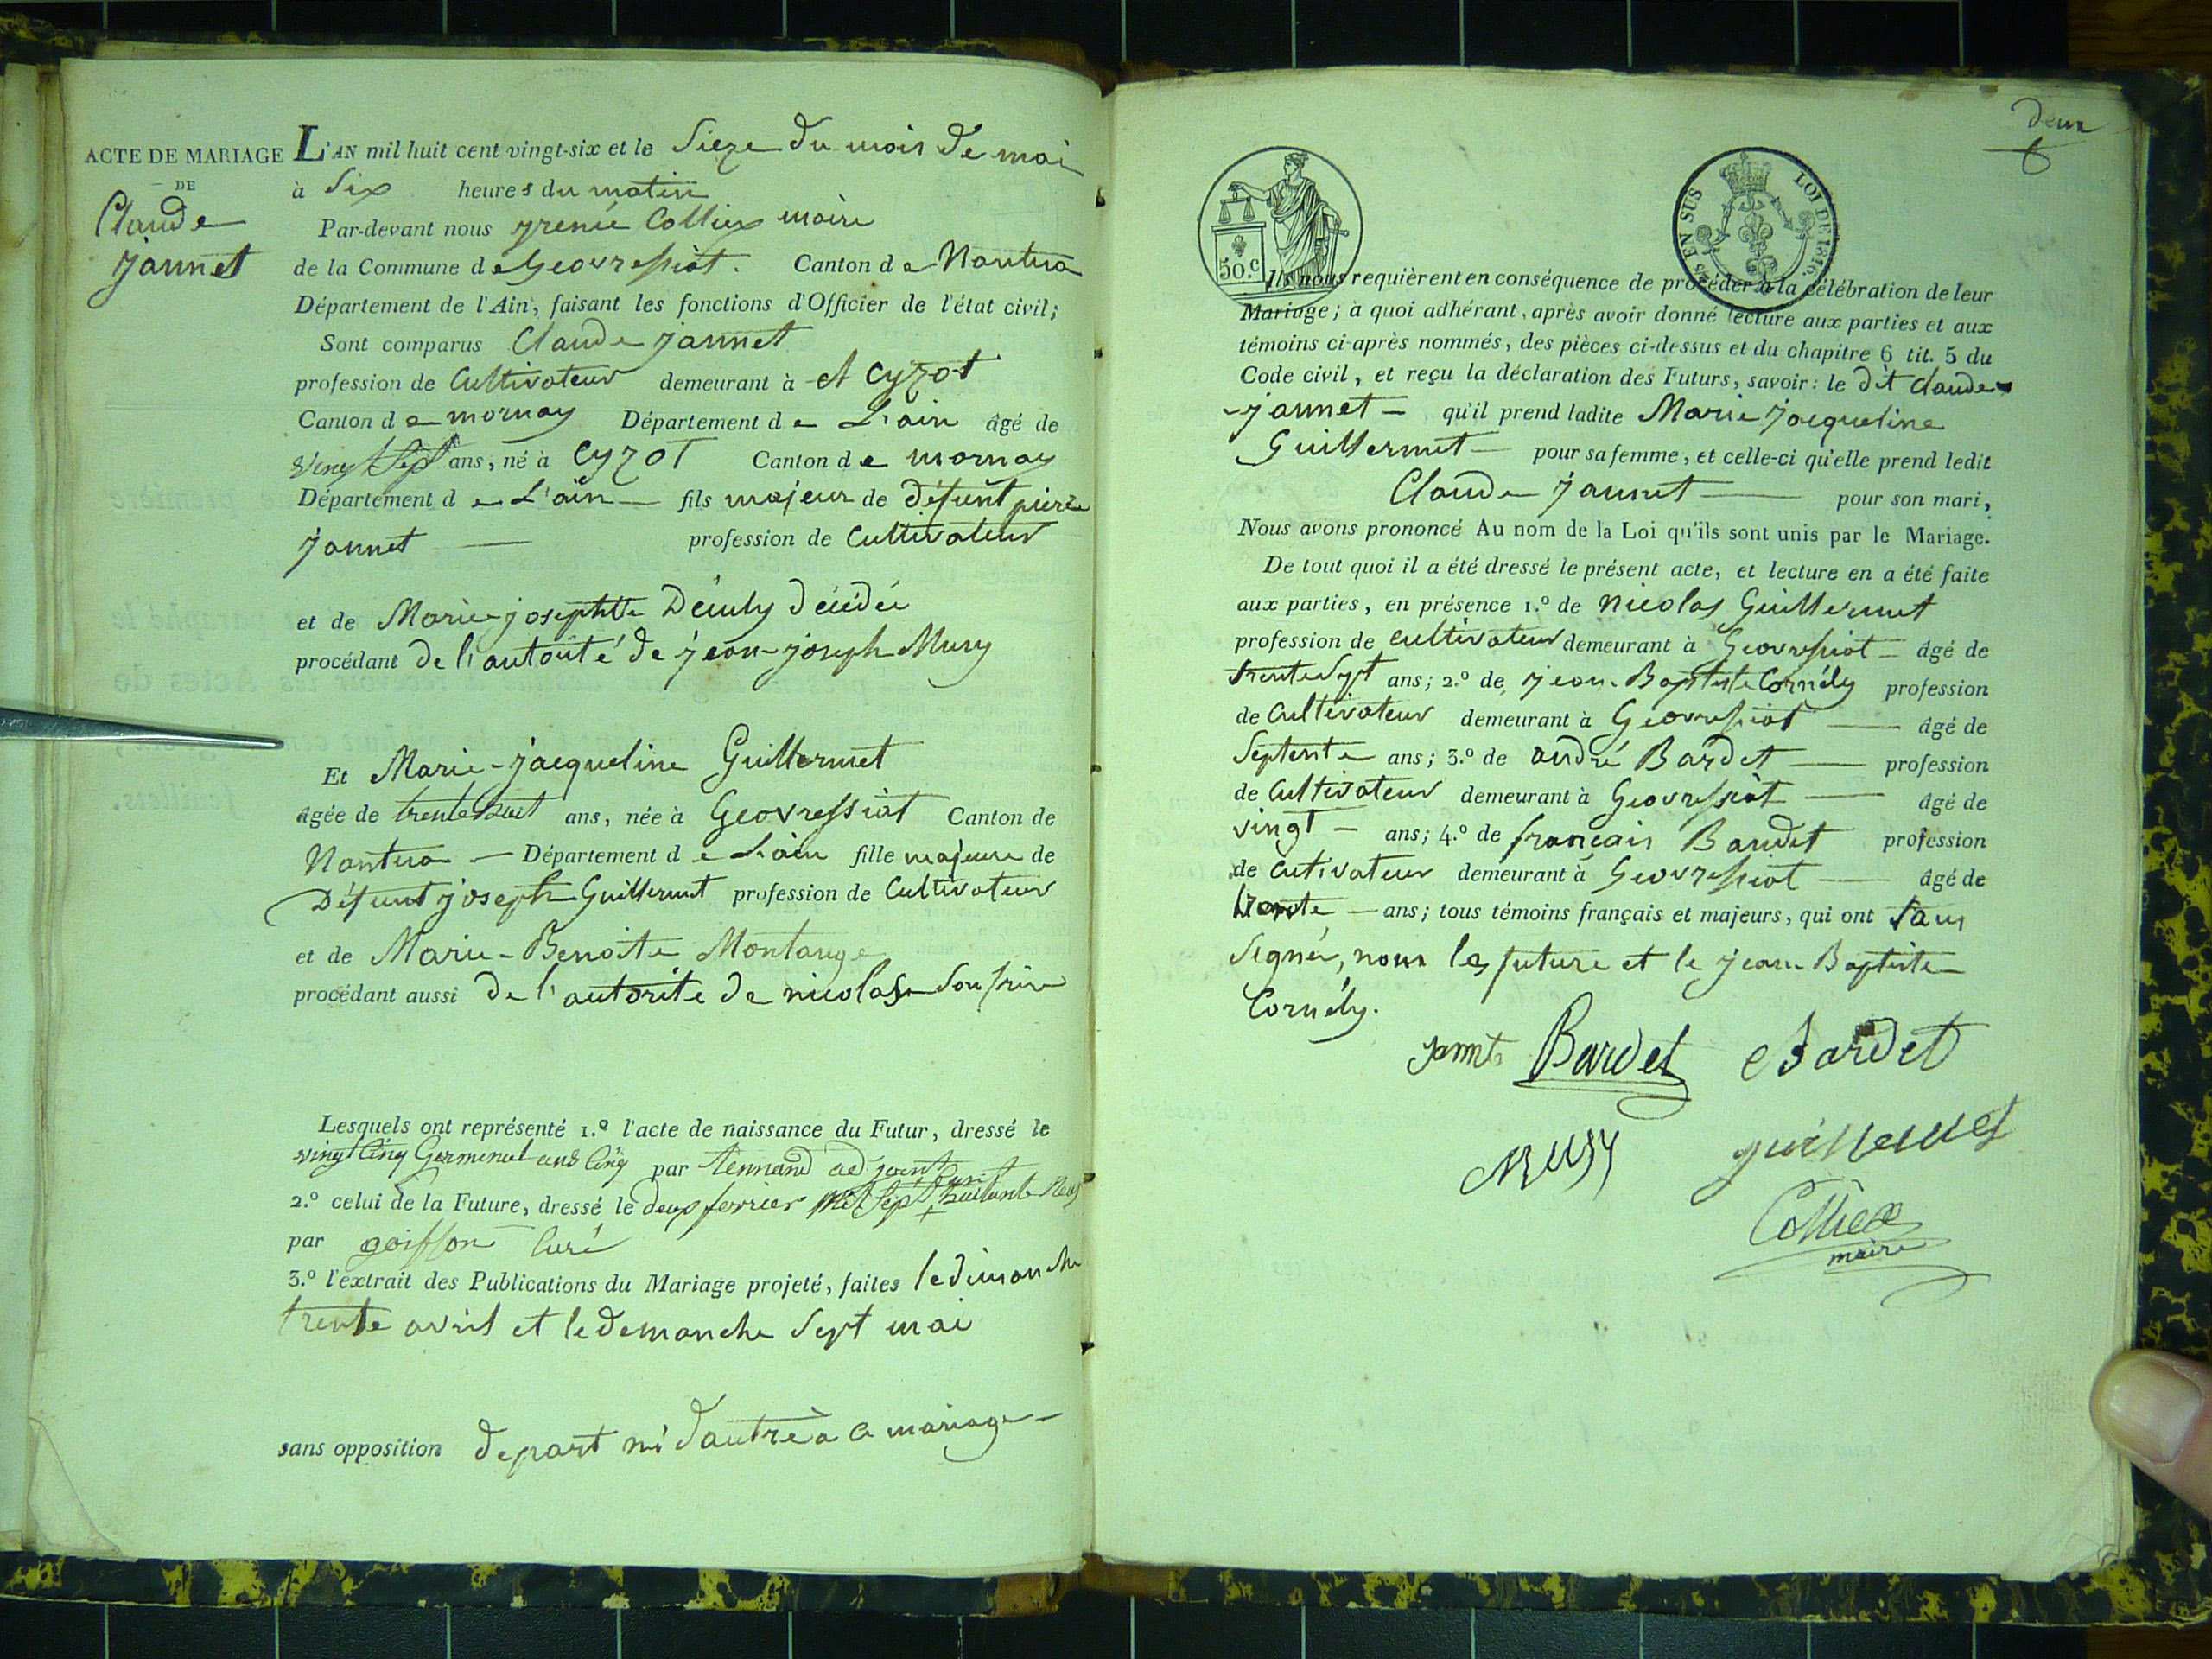 ACTE DE MARIAGE
DE
Claude
jannet
L'AN mil huit cent vingt-six et le Sieze du mois de mai
à Six heures du matin
Par-devant nous grenié Colliex maire
de la Commune de Geovressiat. Canton de Nantua
Département de l'Ain, faisant les fonctions d'Officier de l'état civil;
Sont comparus Claude jannet
profession de Cultivateur demeurant à et Cyzot
Canton de mornay Département de L'ain âgé de
vingt Sept ans, né à Cyzot Canton de mornay
Département de L'ain — fils majeur de défunt pierre
jannet — profession de Cultivateur
et de Marie-josephtte décédée
procédant de l'autorité de jean-joseph Musy
Et Marie-jacqueline Guillermet
âgée de trente Sept ans, née à Geovressiat Canton de
Nantua — Département de L'ain fille majeure de
Défunt joseph Guillermet profession de Cultivateur
et de Marie-Benoite Montange
procédant aussi de l'autorite de nicolas Son frère
Lesquels ont représenté 1.º l'acte de naissance du Futur, dressé le
vingt Cinq Germinal ans Cinq par adjoint
2.º celui de la Future, dressé le deux fevrier mil Sept Cent huitante Neuf
par goiffon Curé
3.º l'extrait des Publications du Mariage projeté, faites le dimanche
trente avril et le demanche Sept mai
sans opposition de part ni d'autre à ce mariage —
deux
6
50.c
EN SUS
LOI DE 1816.
Ils nous requièrent en conséquence de procéder à la célébration de leur
Mariage; à quoi adhérant, après avoir donné lecture aux parties et aux
témoins ci-après nommés, des pièces ci-dessus et du chapitre 6 tit. 5 du
Code civil, et reçu la déclaration des Futurs, savoir: le dit Claude
-jannet — qu'il prend ladite Marie jacqueline
Guillermet — pour sa femme, et celle-ci qu'elle prend ledit
Claude jannet — pour son mari,
Nous avons prononcé Au nom de la Loi qu'ils sont unis par le Mariage.
De tout quoi il a été dressé le présent acte, et lecture en a été faite
aux parties, en présence 1.º de nicolas Guillermet
profession de cultivateur demeurant à Geovressiat — âgé de
trente Sept ans; 2.º de jean-Baptiste Cornély profession
de Cultivateur demeurant à Geovressiat — âgé de
Septente ans; 3.º de andré Bardet — profession
de Cultivateur demeurant à Geovressiat — âgé de
vingt — ans; 4.º de français Bardet profession
de Cutivateur demeurant à Geovressiat — âgé de
trente — ans; tous témoins français et majeurs, qui ont Saus
Signér, nous les future et le jean Baptiste
Cornély.
Bardet Bardet
Musy guillermet
Colliex
maire